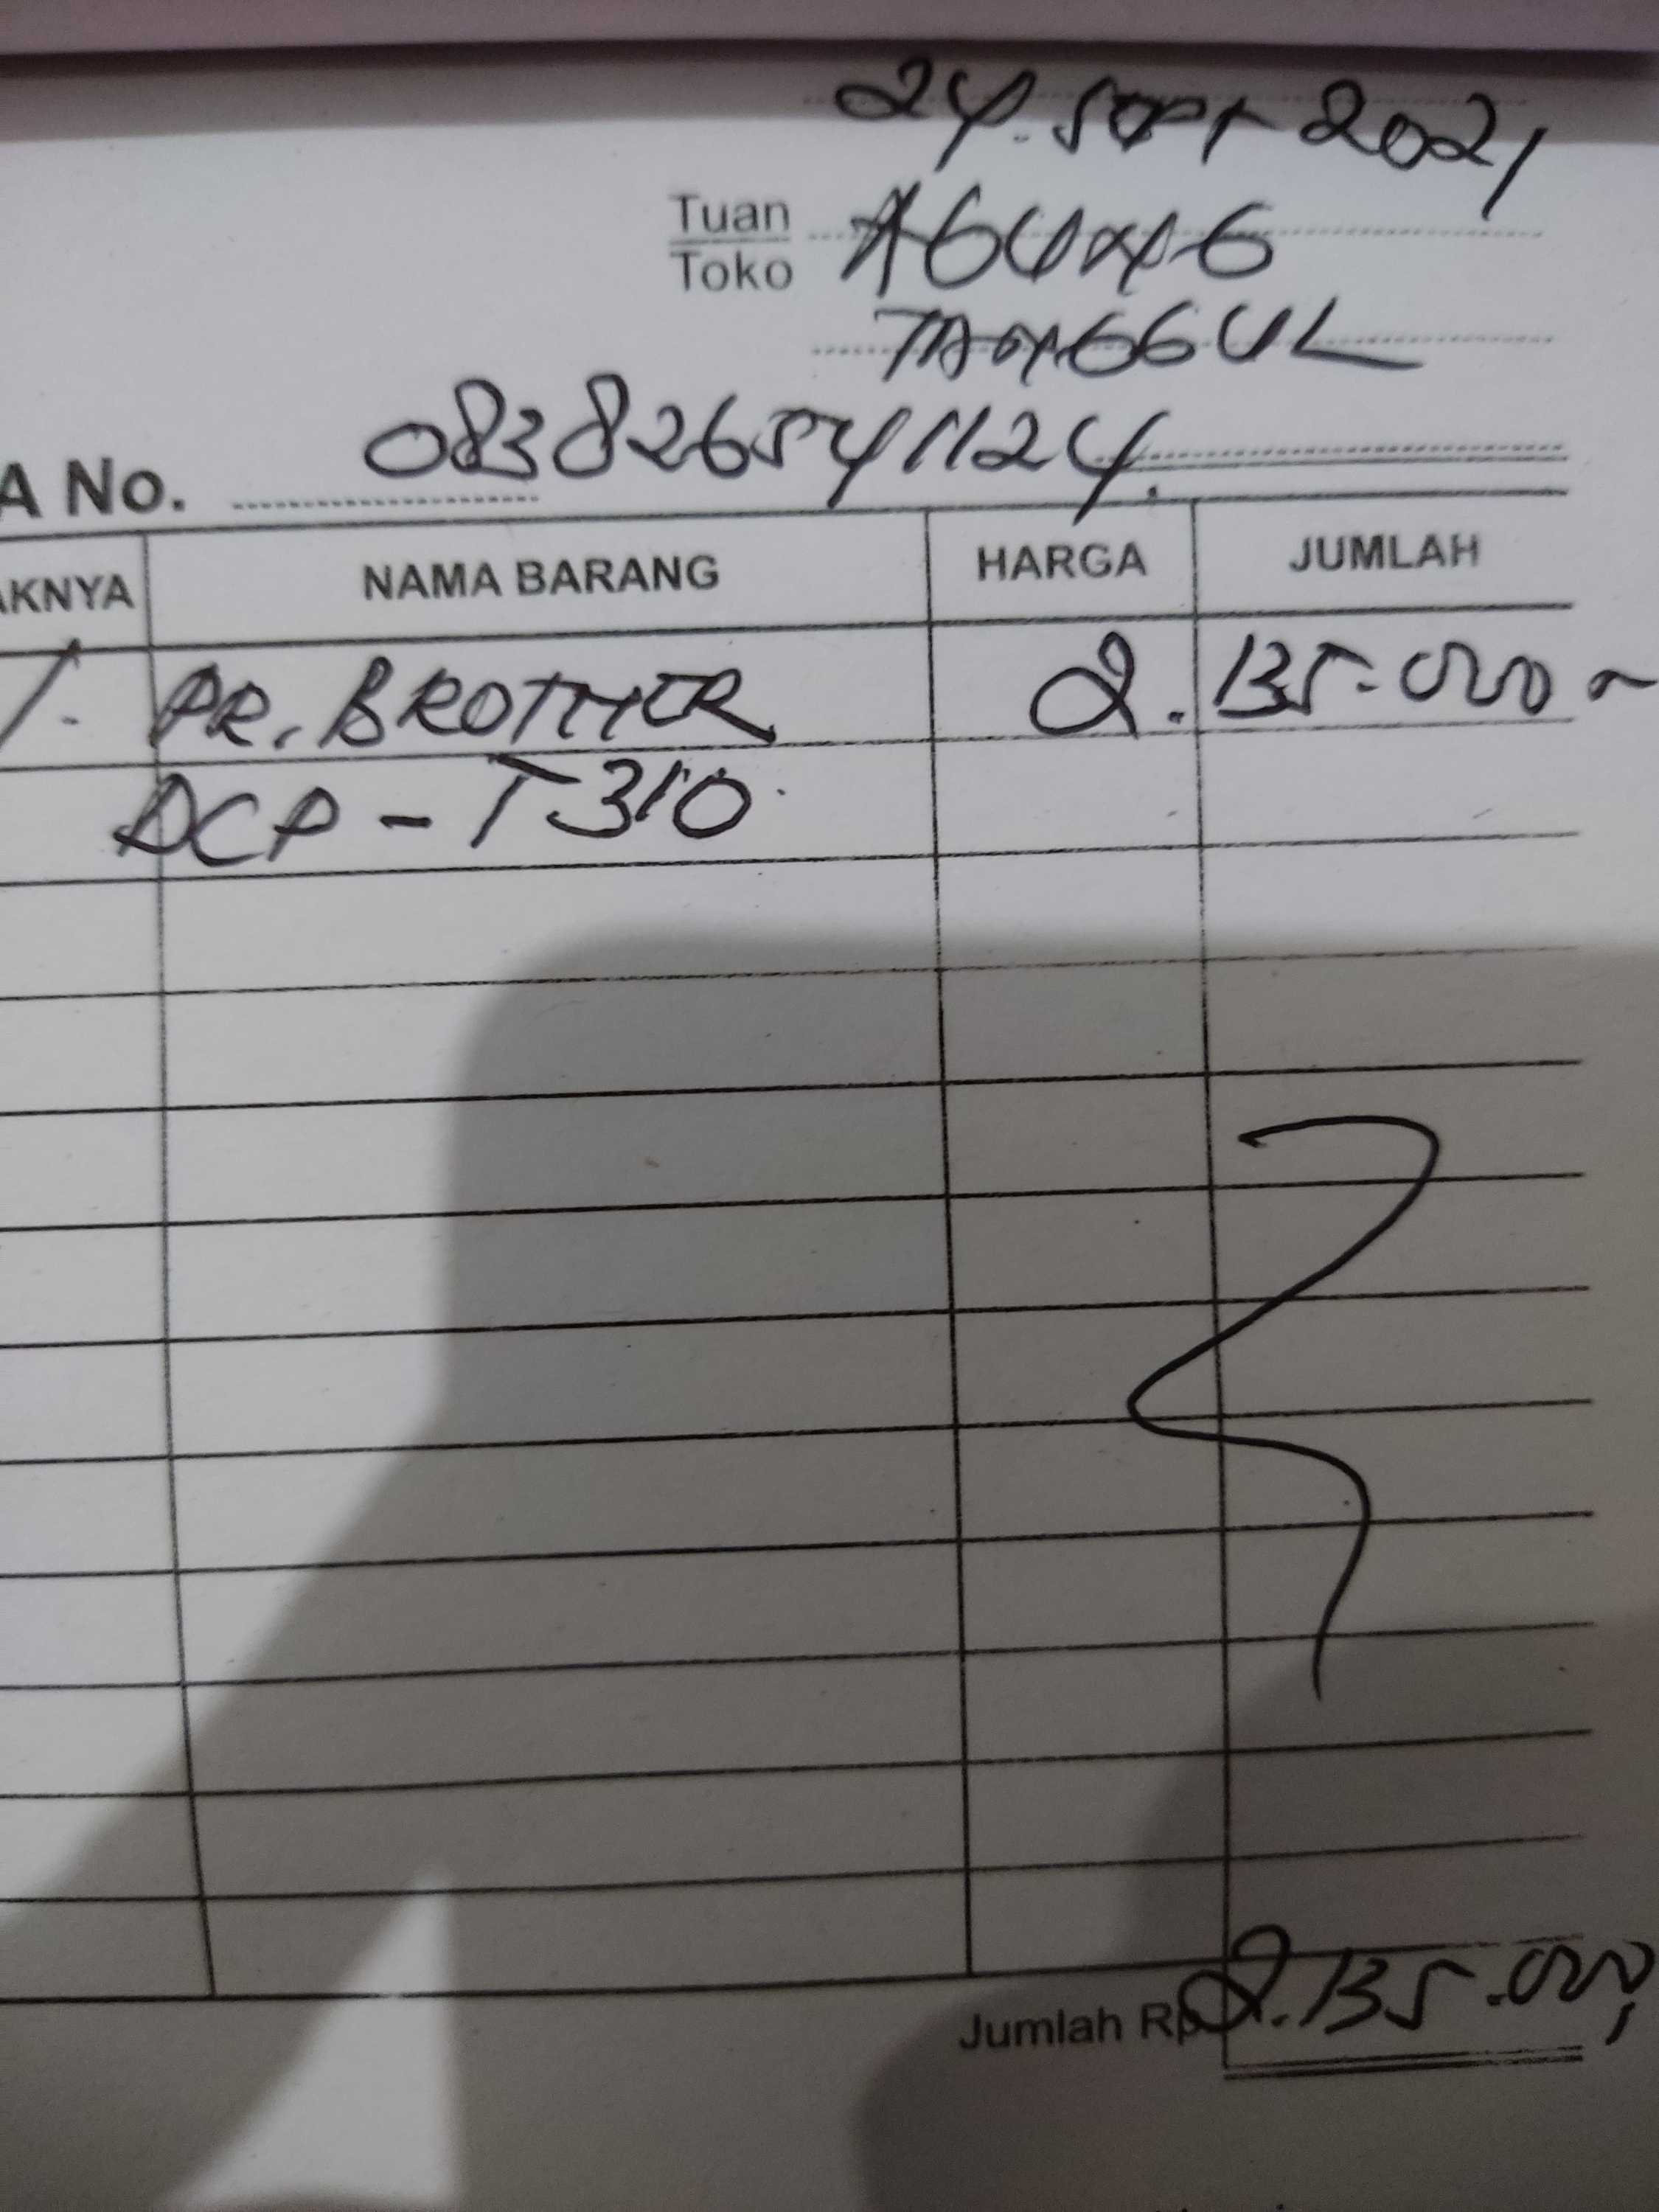 24. Sept 2021
Tuan
Toko
AGUNG
TANGGUL
A No. 083826541124.
AKNYA NAMA BARANG HARGA JUMLAH
1. PR. BROTHER 2.135.000
DCP - T310
Jumlah Rp 2.135.000,